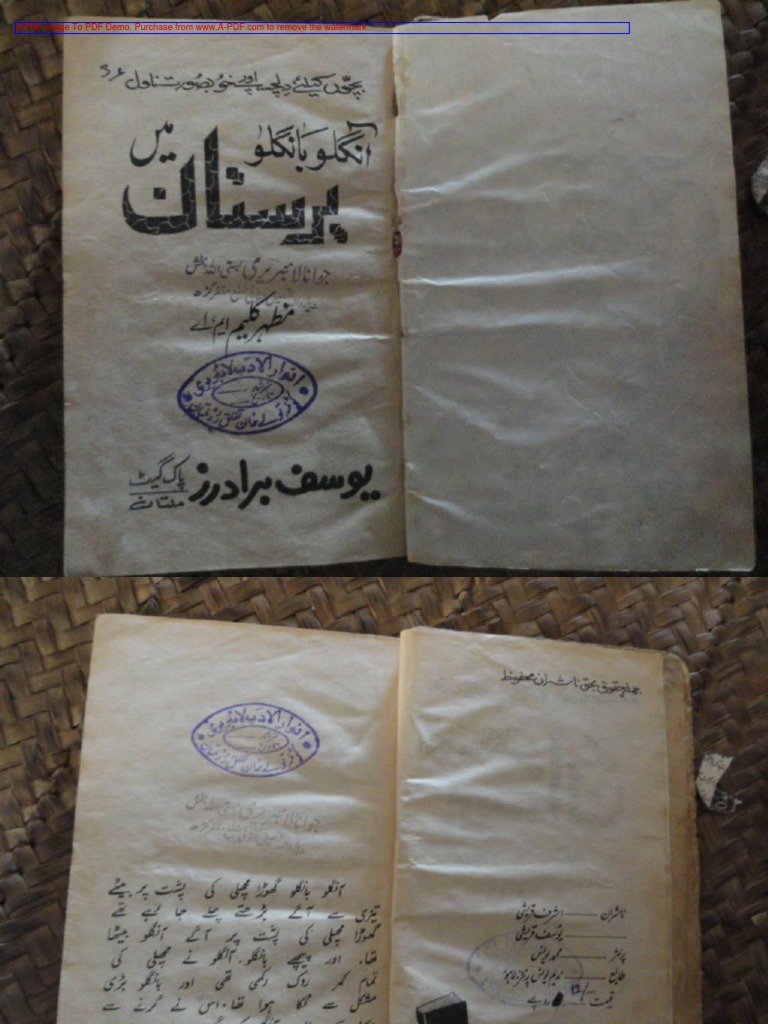 A-PDF Image To PDF Demo. Purchase from www.A-PDF.com to remove the watermark
بچّوں کیلئے دلچسپ اور خوبصورت ناول
آنگلو بانگلو میں
پرستان
جوانا لائبریری بستی اللہ بخش
مظہر کلیم ایم اے
انوار الادب لائبریری
یوسف برادرز پاک گیٹ
ملتان
جملہ حقوق بحق ناشران محفوظ
ناشران ——— اشرف قریشی
——— یوسف قریشی
پرنٹر ——— محمد یونس
طابع ——— ندیم یونس پرنٹرز لاہور
قیمت ——— 12/- روپے
انوار الادب لائبریری
جوانا لائبریری بستی اللہ بخش
آنگلو بانگلو گھوڑا مچھلی کی پشت پر بیٹھے
تیزی سے آگے بڑھتے چلے جا رہے تھے
گھوڑا مچھلی کی پشت پر آگے آنگلو بیٹھا
تھا۔ اور پیچھے بانگلو۔ آنگلو نے مچھلی کی
تمام کمر روک رکھی تھی اور بانگلو بڑی
مشکل سے ٹکا ہوا تھا۔ اس نے گرنے سے